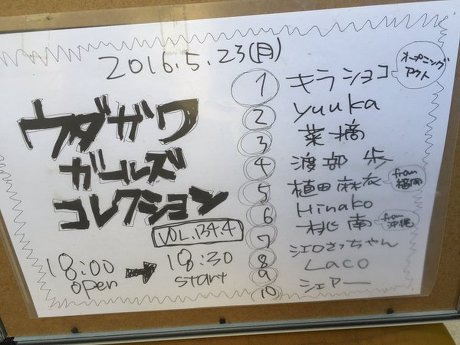 2016.5.23(月)
ウダガワ
ガールズ
コレクション
VOL.344
18:00 → 18:30
open start
1 キラショコ オープニングアウト
2 yuuka
3 薬摘
4 渡部 歩
5 植田麻衣 from福岡
6 Hinako
7 桃南 from沖縄
8 江口さっちゃん
9 Laco
10 シェアー